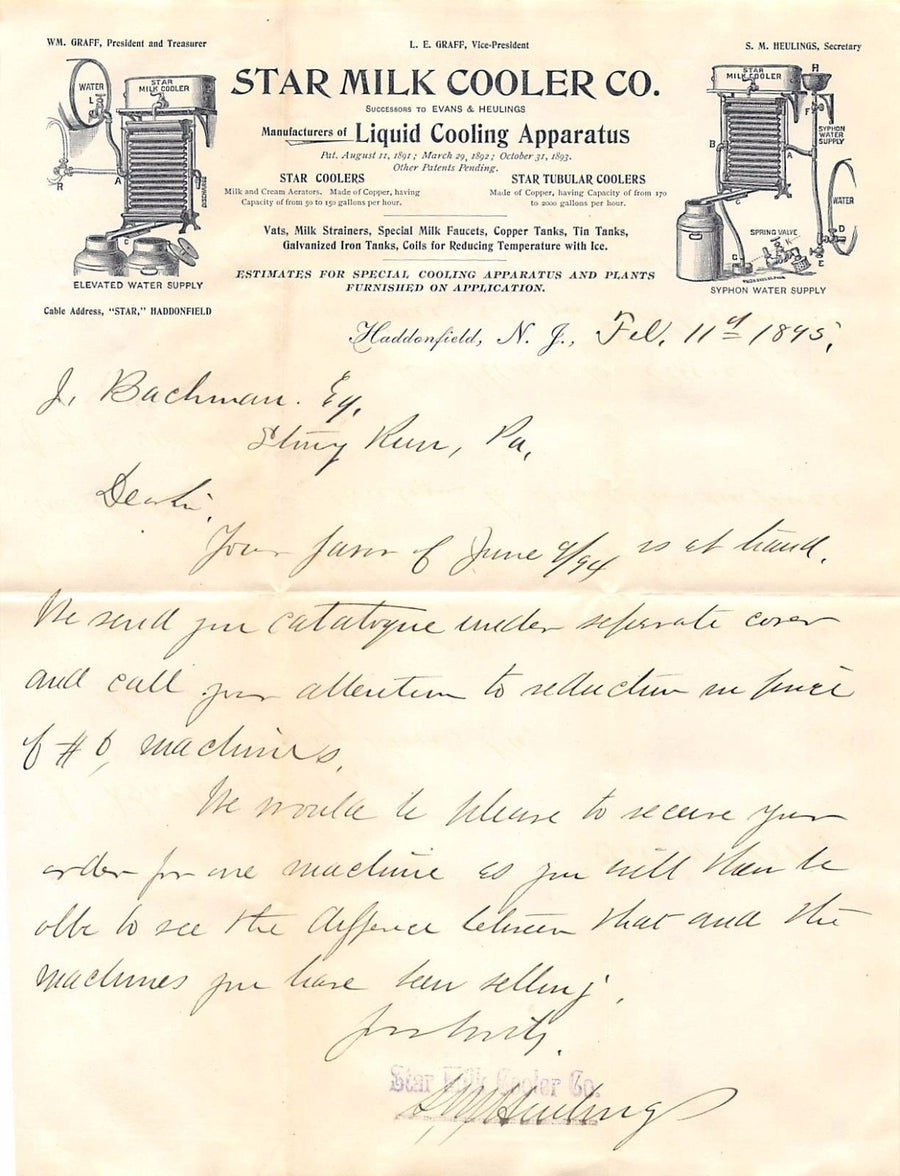 WM. GRAFF, President and Treasurer
L. E. GRAFF, Vice-President
S. M. HEULINGS, Secretary
STAR MILK COOLER CO.
SUCCESSORS TO EVANS & HEULINGS
Manufacturers of Liquid Cooling Apparatus
Pat. August 11, 1891; March 29, 1892; October 31, 1893.
Other Patents Pending.
STAR COOLERS
Milk and Cream Aerators. Made of Copper, having
Capacity of from 50 to 150 gallons per hour.
STAR TUBULAR COOLERS
Made of Copper, having Capacity of from 170
to 2000 gallons per hour.
Vats, Milk Strainers, Special Milk Faucets, Copper Tanks, Tin Tanks,
Galvanized Iron Tanks, Coils for Reducing Temperature with Ice.
ESTIMATES FOR SPECIAL COOLING APPARATUS AND PLANTS
FURNISHED ON APPLICATION.
WATER
L
STAR
MILK COOLER
R
A
DISCHARGE
C
ELEVATED WATER SUPPLY
Cable Address, "STAR," HADDONFIELD
STAR
MILK COOLER
H
F
SYPHON
WATER
SUPPLY
B
A
WATER
SPRING VALVE
K
C
G
D
E
SYPHON WATER SUPPLY
Haddonfield, N. J., Feb. 11th 1895,
J. Bachman. Esq,
Stony Run, Pa,
Dear Sir,
Your favor of June 9/94 is at hand.
We send you catatogue under seperate cover
and call your attention to reduction in price
of # 6, machines.
We would be please to secure your
order for one machine as you will then be
able to see the diffence between that and the
machines you have been selling.
Yours truly,
Star Milk Cooler Co.
S M Heulings